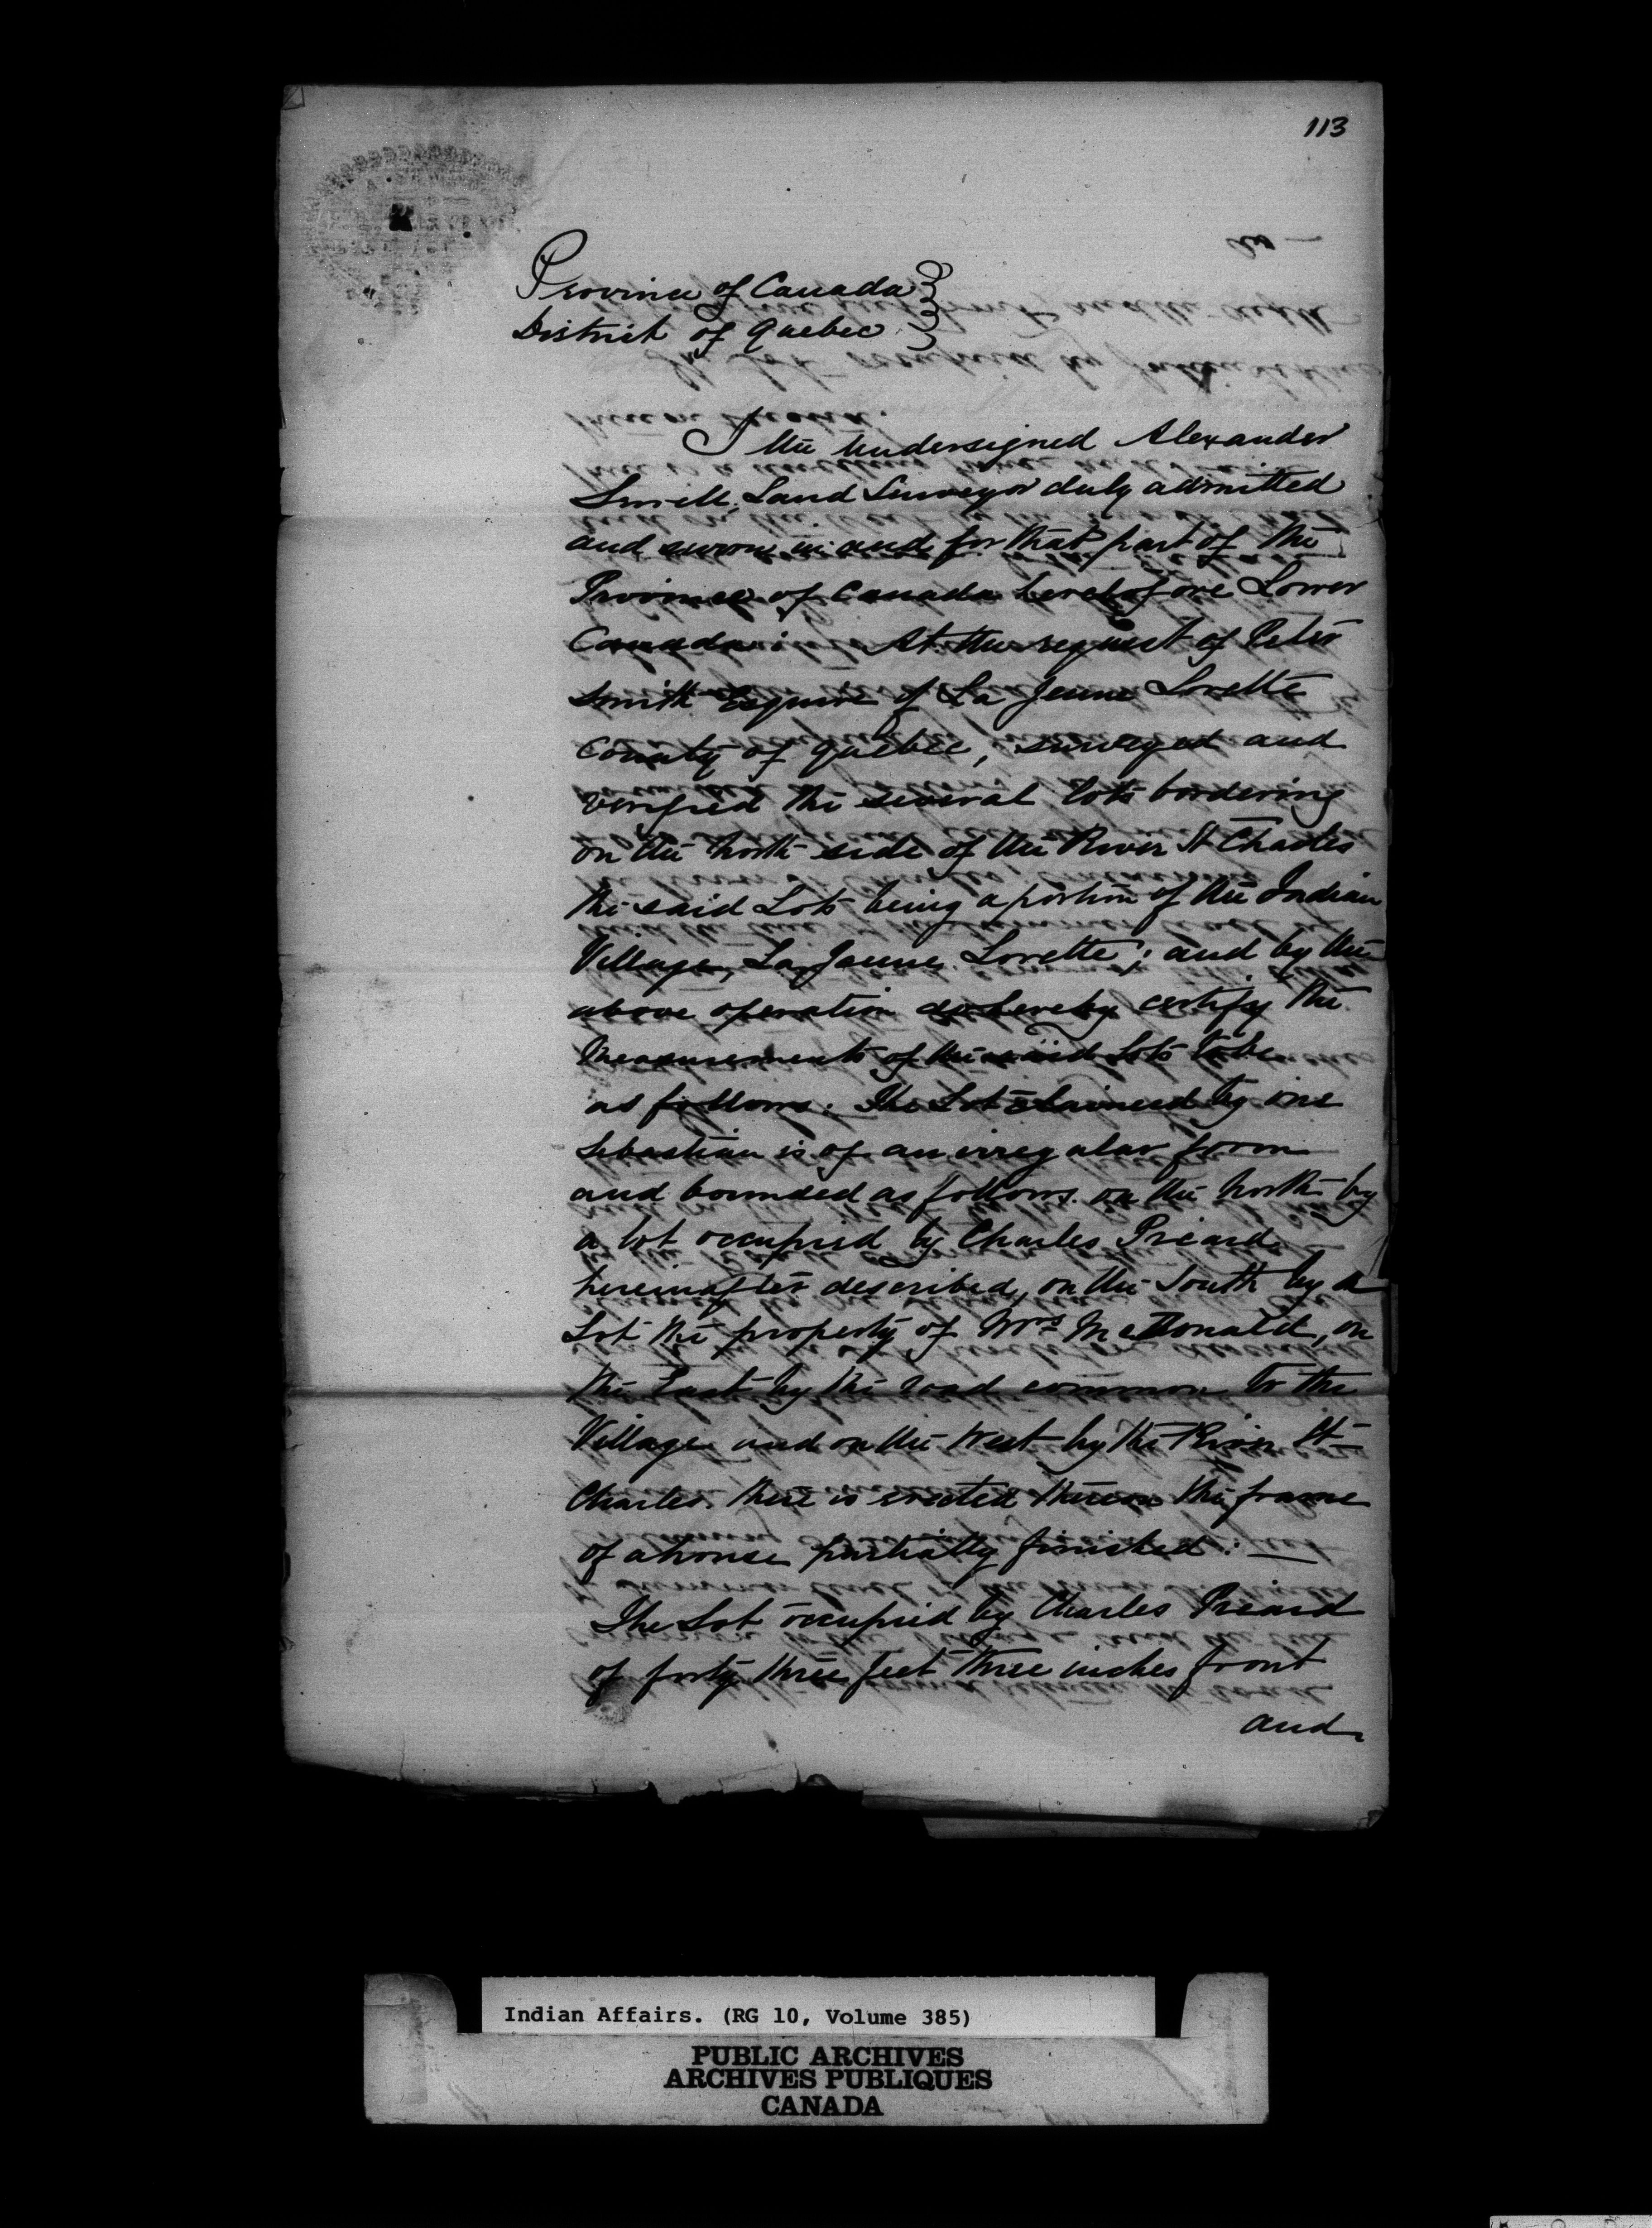 113
Province of Canada
District of Quebec
I the Undersigned Alexander
Sewell, Land Surveyor duly admitted
and sworn in and for that part of the
Province of Canada heretofore Lower
Canada: At the request of Peter
Smith Esquire of La Jeune Lorette
County of Quebec, surveyed and
verified the several lots bordering
on the north side of the River St Charles
the said Lots being a portion of the Indian
Village, La Jeune Lorette; and by the
above operation do hereby certify the
Measurements of the said Lots to be
as follows: The Lot claimed by one
Sebastian is of an irregular form
and bounded as follows. on the North by
a lot occupied by Charles Picard
hereinafter described, on the South by a
Lot the property of Mrs McDonald, on
the East by the road common to the
Village and on the West by the River St
Charles. there is erected thereon the frame
of a house partially finished: —
The Lot occupied by Charles Picard
of forty three feet three inches front
and
Indian Affairs. (RG 10, Volume 385)
PUBLIC ARCHIVES
ARCHIVES PUBLIQUES
CANADA